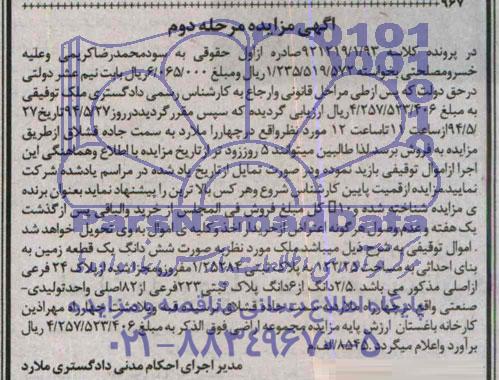 ۹۶۷
آگهی مزایده مرحله دوم
در پرونده کلاسه ۹۲۱۲۱۹/۱/۹۳ صادره ازاول حقوقی به سودمحمدرضاکریمی وعلیه
خسرومصلحتی بخواسته ۱/۲۳۵/۵۱۹/۵۷۲ریال ومبلغ ۶/۰۶۵/۰۰۰ریال بابت نیم عشر دولتی
درحق دولت که پس ازطی مراحل قانونی وارجاع به کارشناس رسمی دادگستری ملک توقیفی
به مبلغ ۴/۲۵۷/۵۲۳/۴۰۶ ریال ارزیابی گردیده که سپس مقرر گردیددرروز
۹۴/۵/ ازساعت ۱۱ تاساعت ۱۲ موردنظرواقع درچهارراه ملارد به سمت جاده قشلاق ازطریق
مزایده به فروش برسد.لذا طالبین میتوانند ۵ روززود تر از تاریخ مزایده با اطلاع وهماهنگی این
اجرا ازاموال توقیفی بازید نموده ودر صورت تمایل ازتاریخ یاد شده در مراسم یادشده شرکت
نمایید.مزایده ازقیمت پایین کارشناسی شروع وهر کس بالا ترین را پیشنهاد نماید بعنوان برنده
ی مزایده شناخته شده و۱۰ کل مبلغ فروش فی المجلس از خرید والباقی پس از گذشت
یک هفته وعدم وصول هرگونه اعتراض ازخریدار اخذوکلیه ی اموال به وی تحویل خواهد شد
. اموال توقیفی به شرح ذیل میباشد ملک مورد نظربه صورت شش دانگ یک قطعه زمین به
بنای احداثی به مساحت به پلاک ثبتی مفروزومجزاشده ازپلاک ۲۴ فرعی
ازاصلی مذکور می باشد .۲/۵دانگ از۶دانگ پلاک ثبتی ۲۲۳فرعی از۸۲اصلی واحدتولیدی-
صنعتی واقع
کارخانه باغستان ارزش پایه مزایده مجموعه اراضی فوق الذکر به مبلغ ۴/۲۵۷/۵۲۳/۴۰۶ ریال
برآورد واعلام میگردد.۸۵۴۵/الف م
مدیر اجرای احکام مدنی دادگستری ملارد
پایگاه اطلاع رسانی مناقصه و مزایده
۰۲۱-۸۸۳۴۹۶۷۰-۵